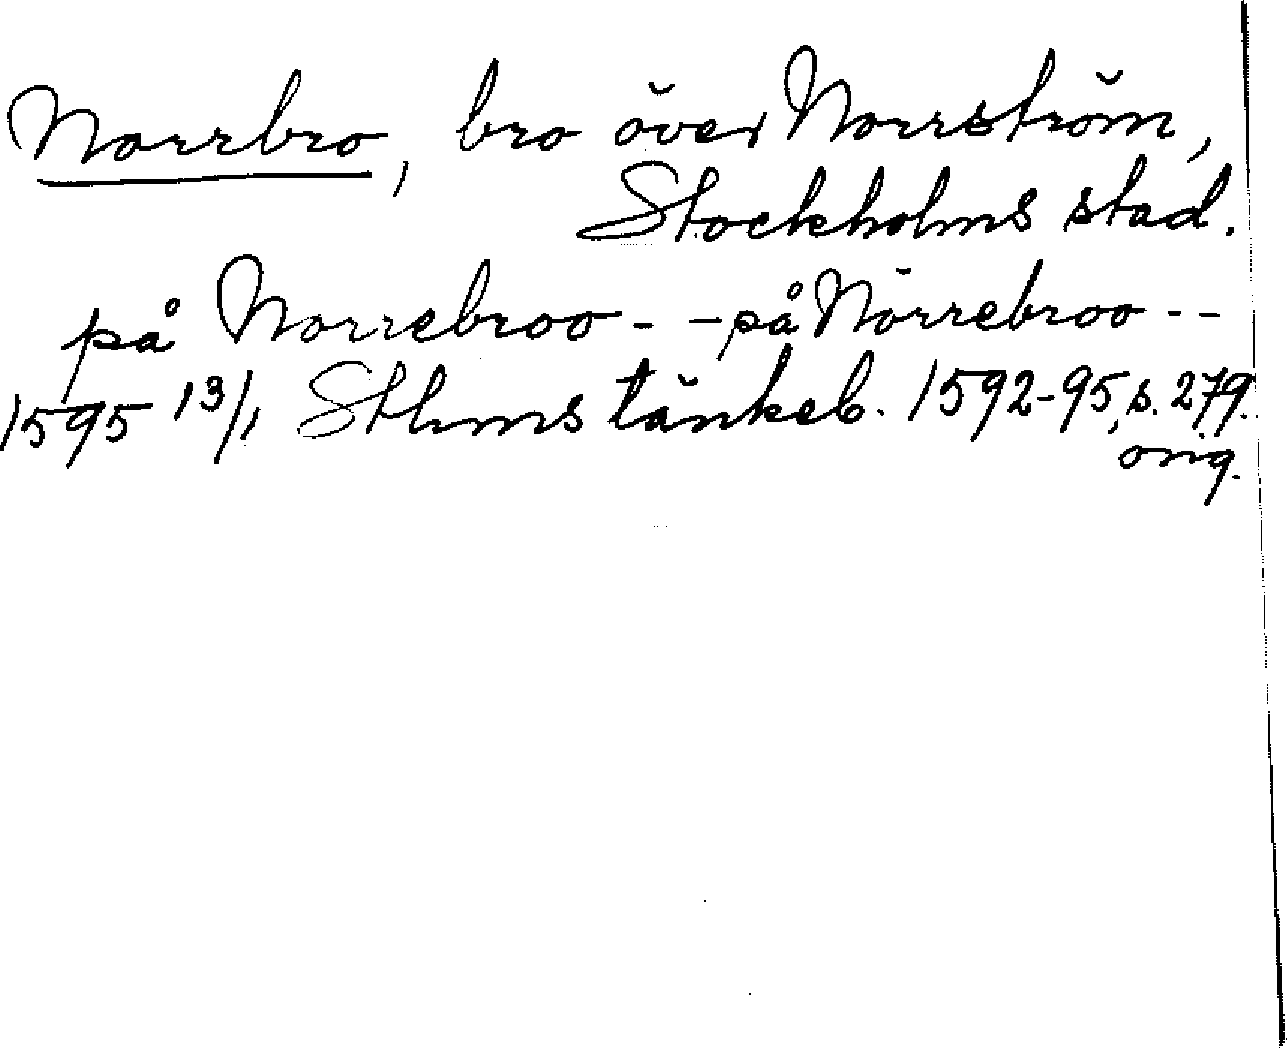 Norrbro, bro över Norrström,
Stockholms stad.
på Norrebroo - - på Nörrebroo - -
1595 13/1 Sthms tänkeb. 1592-95, s. 279.
orig.